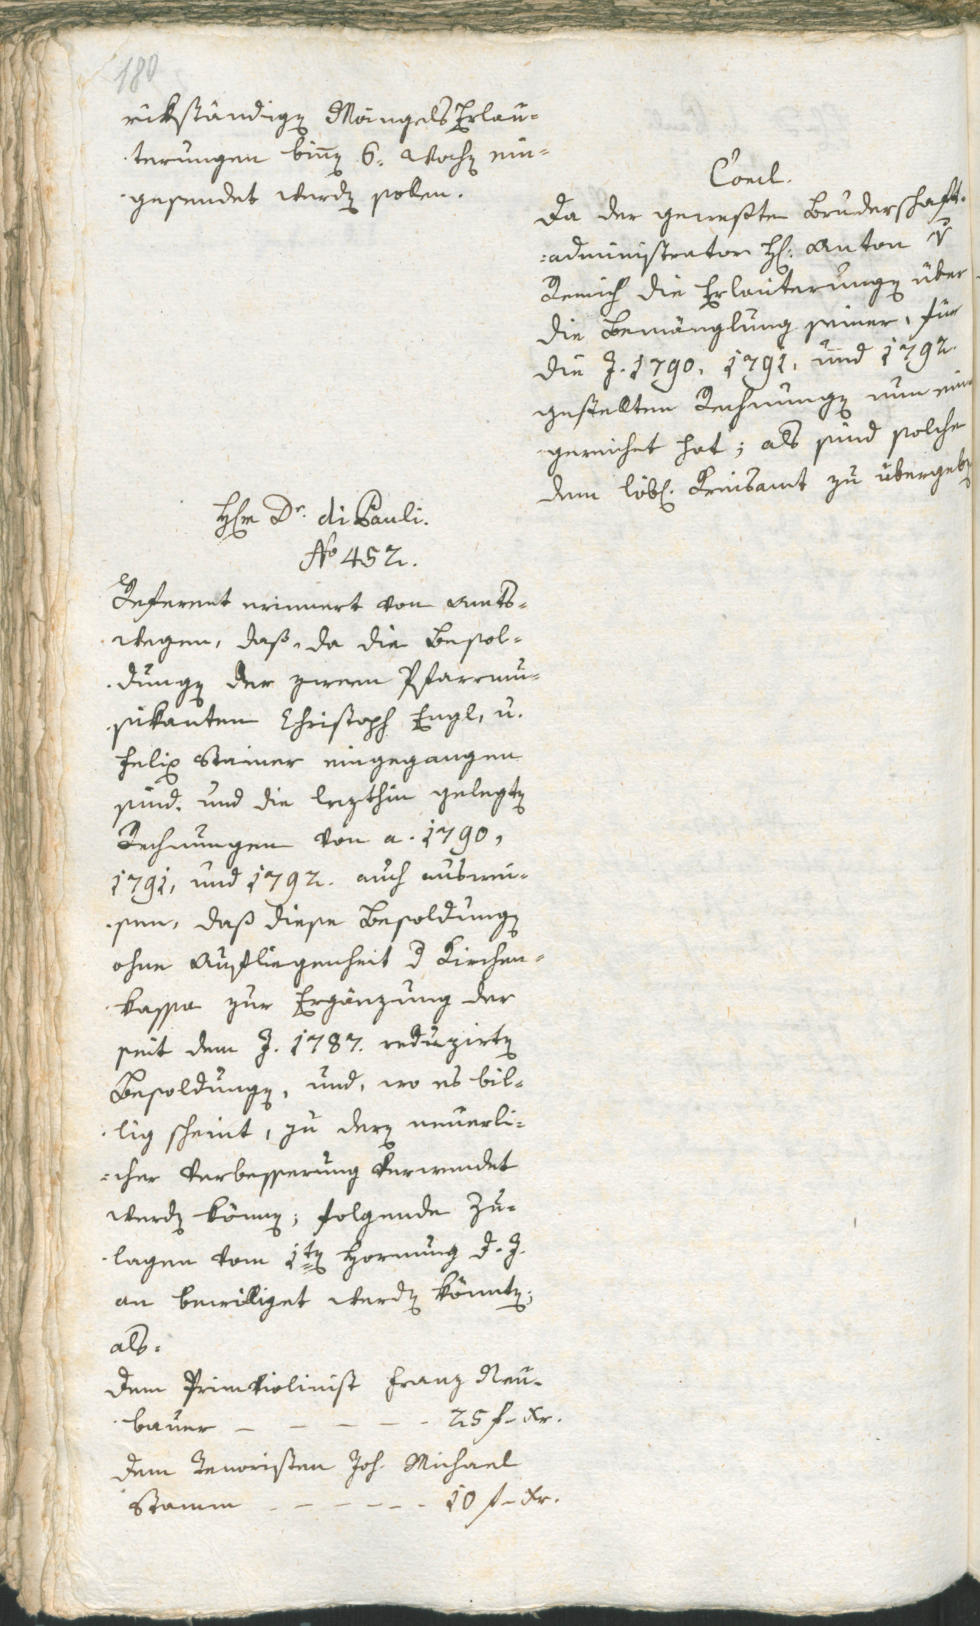 180
rükständigen Mängels Erläu-
terungen binnen 6. Wochen ein-
gesendet werden sollen.
Concl.
Da der geweßte Bruderschaft-
administrator H: Anton v
Remich die Erläuterungen über
die Bemänglung seiner, für
die J. 1790, 1791, und 1792.
gestellten Rechnungen nun ein
gereichet hat; als sind solche
dem löbl. Kreisamt zu übergeben
Herr Dr. di Pauli.
No 452.
Referent erinnert von Amts-
wegen, daß, da die Besol-
dungen der zween Pfarrmu-
sikanten Christoph Engl, u.
Felix Steiner eingegangen
sind, und die lezthin gelegten
Rechnungen von a. 1790,
1791, und 1792. auch auswei-
sen, daß diese Besoldungen
ohne Aufliegenheit d Kirchen-
kassa zur Ergänzung der
seit dem J. 1787. reduzirten
Besoldungen, und, wo es bil-
lig scheint, zu deren neuerli-
cher Verbesserung verwendet
werden können; folgende Zu-
lagen vom 1ten Hornung d. J.
an bewilliget werden könnten;
als.
Dem Primviolinist Franz Neu-
bauer – – – – – 25 f – Xr.
Dem Tenoristen Joh. Michael
Stamm – – – – – – 10 f – Xr.